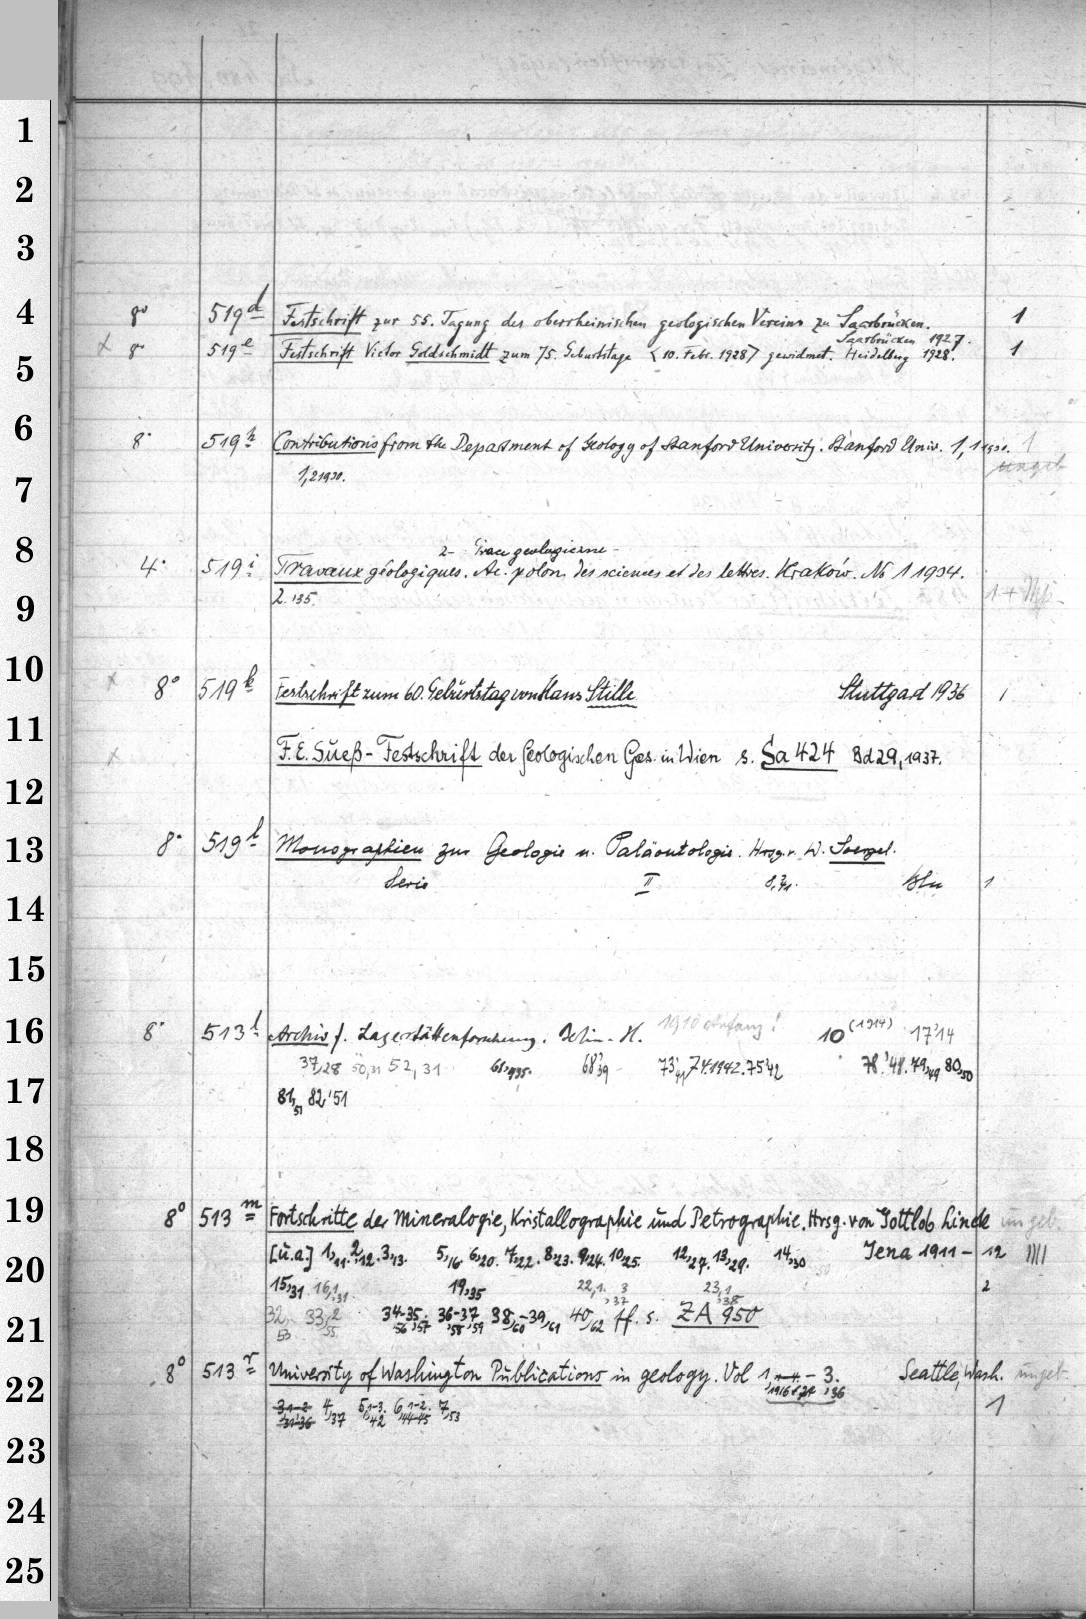 1
2
3
4
8° 519d Festschrift zur 55. Tagung des oberrheinischen geologischen Vereins zu Saarbrücken. 1
Saarbrücken 1927.
5
x 8° 519e Festschrift Victor Goldschmidt zum 75. Geburtstage <10. Febr. 1928> gewidmet. Heidelberg 1928. 1
6
8° 519h Contributions from the Department of Geology of Stanford University. Stanford Univ. 1,1 1930. 1
ungeb
1,2 1930.
7
8
2- Prace geologiczne -
4° 519i Travaux géologiques. Ac. polon. des sciences et des lettres. Kraków. No 1 1934.
2.'35.
9
10
x 8° 519k Festschrift zum 60. Geburtstag von Hans Stille Stuttgart 1936 1
11
x F. E. Sueß-Festschrift der Geologischen Ges. in Wien s. Sa 424 Bd 29, 1937.
12
13
8° 519l Monographien zur Geologie u. Paläontologie. Hrsg. v. W. Soergel.
Serie II Bln 1
14
15
16
8° 513l Archiv f. Lagerstättenforschung. H. 1910 anfang! 10 (1914) 17'14
37,28 50,31 52,31 61,1935. 68'39 73'41 74.1942. 75'42 78.'48. 79,49 80,50
17
81,51 82,'51
18
19
8° 513m Fortschritte der Mineralogie, Kristallographie und Petrographie. Hrsg. von Gottlob Linck ungeb.
20
[u.a] 1,11. 2,12. 3,13. 5,16. 6,20. 7,22. 8,23. 9,24. 10,25. 12,27. 13,29. 14,30 Jena 1911 - 12 IIII
15,31 16,1,31 19,35 22,1. 3,37 23,1,38 2
21
32,53 33,2,55 34-35,56,57 36-37,58,59 38,60-39,61 40,62 ff. s. ZA 950
22
8° 513r University of Washington Publications in geology. Vol 1 - 3. Seattle, Wash. ungeb.
4,37 5,1-3.42 6,1-2.44-45 7,53 1
23
24
25